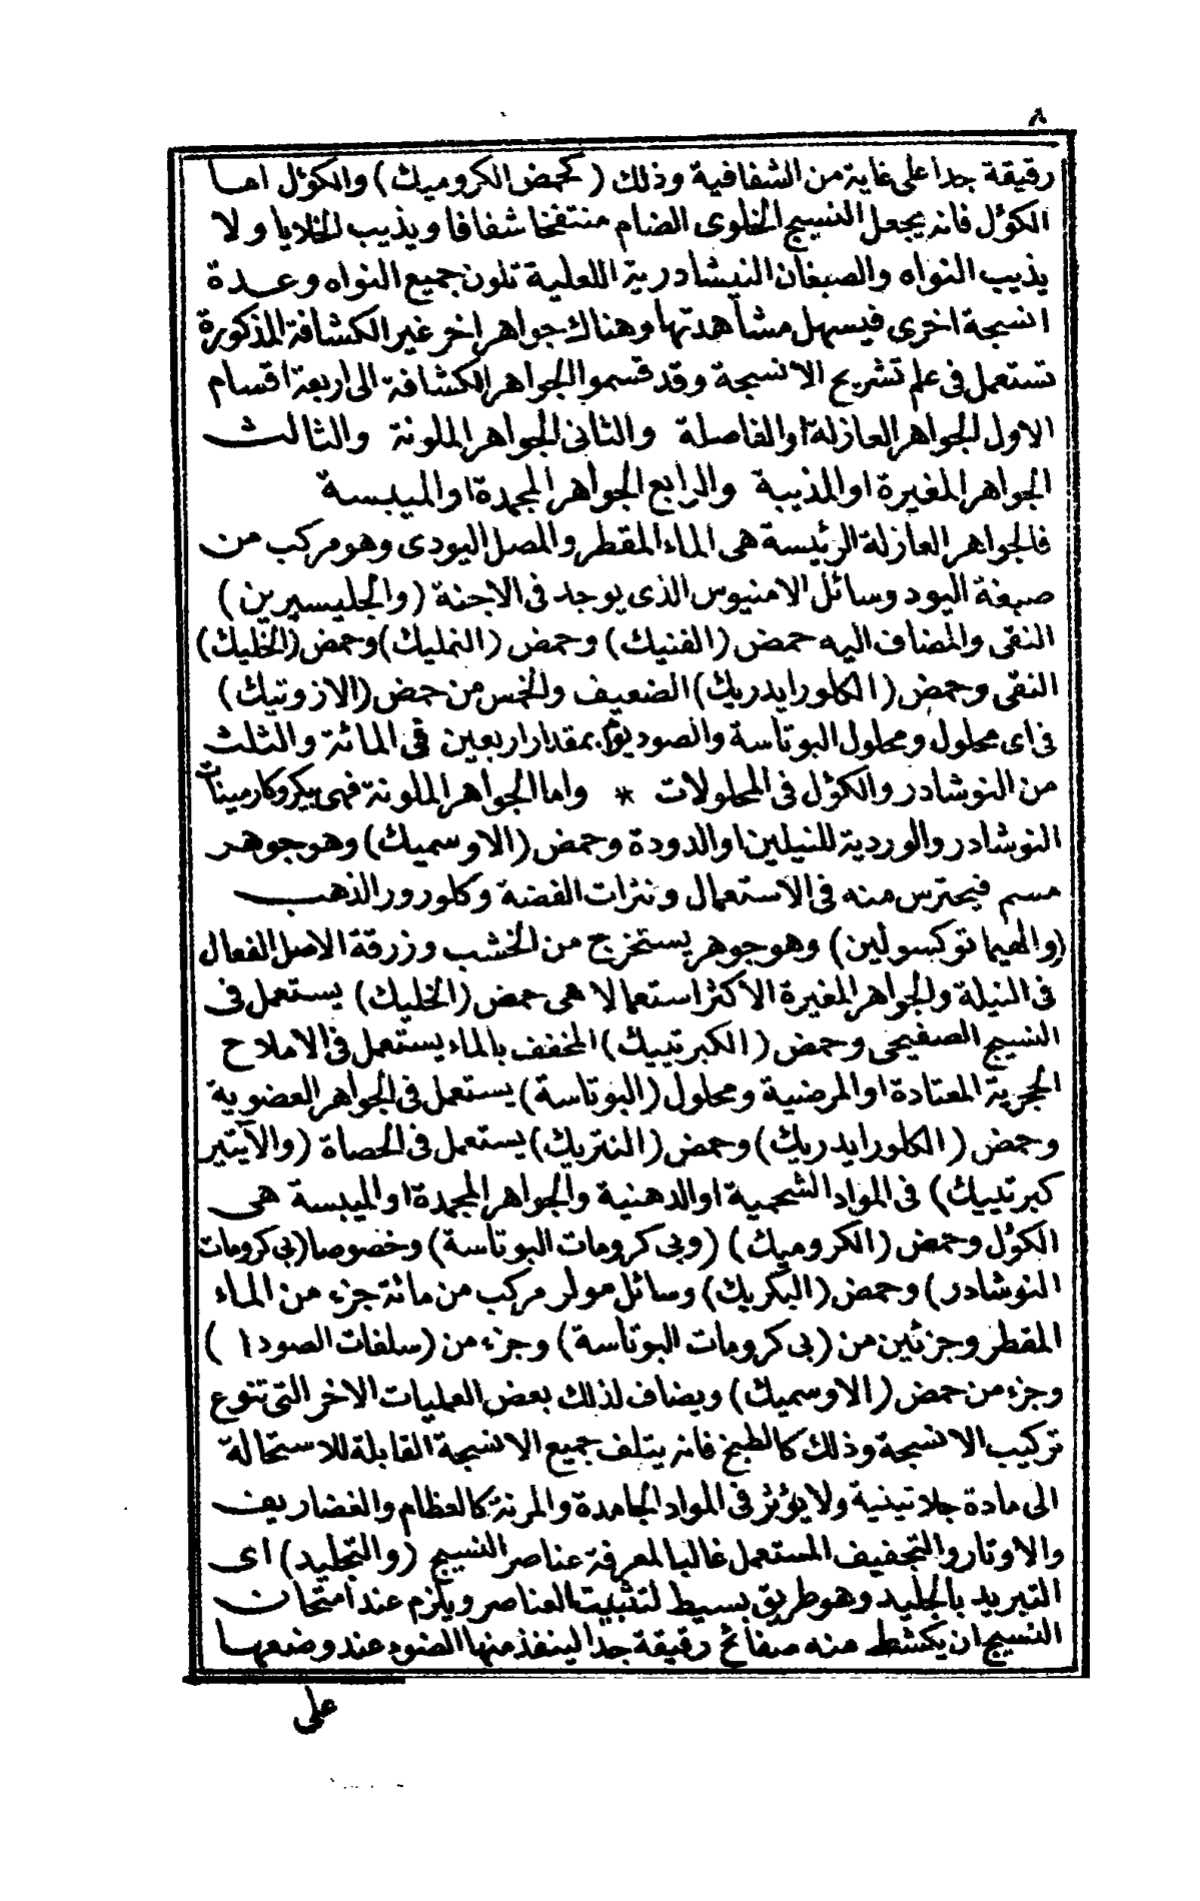 ٨
رقيقة جدا على غاية من الشفافية وذلك (كحمض الكروميك) والكؤل اما
الكؤل فانه يجعل النسيج الخلوى الضام منتفخا شفافا ويذيب الخلايا ولا
يذيب النواه والصبغان النيشادرية اللعلية تلون جميع النواه وعدة
انسيجة اخرى فيسهل مشاهدتها وهناك جواهر اخر غير الكشافة المذكورة
تستعمل فى علم تشريح الانسيجة وقد قسموا الجواهر الكشافة الى اربعة اقسام
الاول الجواهر العازلة او الفاصلة والثانى الجواهر الملونة والثالث
الجواهر المغيرة او المذيبة والرابع الجواهر المجمدة او الميبسة
فالجواهر العازلة الرئيسة هى الماء المقطر والمصل اليودى وهو مركب من
صبغة اليود وسائل الامنيوس الذى يوجد فى الاجنة (والجليسيرين)
النقى والمضاف اليه حمض (الفنيك) وحمض (النمليك) وحمض (الخليك)
النقى وحمض (الكلورايدريك) الضعيف والخمس من حمض (الازوتيك)
فى اى محلول ومحلول البوتاسة والصوديوم بمقدار اربعين فى المائة والثلث
من النوشادر والكؤل فى المحلولات * واما الجواهر الملونة فهى بيكروكارمينات
النوشادر والوردية للنيلين او الدودة وحمض (الاوسميك) وهو جوهر
مسم فيحترس منه فى الاستعمال ونترات الفضة وكلورور الذهب
(والهيما توكسولين) وهو جوهر يستخرج من الخشب وزرقة الاصل الفعال
فى النيلة والجواهر المغيرة الاكثر استعمالا هى حمض (الخليك) يستعمل فى
النسيج الصفيحى وحمض (الكبرتييك) المخفف بالماء يستعمل فى الاملاح
الجزية المعتادة او المرضية ومحلول (البوتاسة) يستعمل فى الجواهر العضوية
وحمض (الكلورايدريك) وحمض (النتريك) يستعمل فى الحصاة (والآيتير
كبرتييك) فى المواد الشحمية او الدهنية والجواهر المجمدة او الميبسة هى
الكؤل وحمض (الكروميك) (وبى كرومات البوتاسة) وخصوصا (بى كرومات
النوشادر) وحمض (البكريك) وسائل مولر مركب من مائة جزء من الماء
المقطر وجزئين من (بى كرومات البوتاسة) وجزء من (سلفات الصودا)
وجزء من حمض (الاوسميك) ويضاف لذلك بعض العمليات الاخر التى تنوع
تركيب الانسيجة وذلك كالطبخ فانه يتلف جميع الانسيجة القابلة للاستحالة
الى مادة جلاتينية ولا يؤثر فى المواد الجامدة والمرنة كالعظام والغضاريف
والاوتار والتجفيف المستعمل غالبا لمعرفة عناصر النسيج (والتجليد) اى
التبريد بالجليد وهو طريق بسيط لتثبيت العناصر ويلزم عند امتحان
النسيج ان يكشط منه صفائح رقيقة جدا لينفذ منها الضوء عند وضعها
على